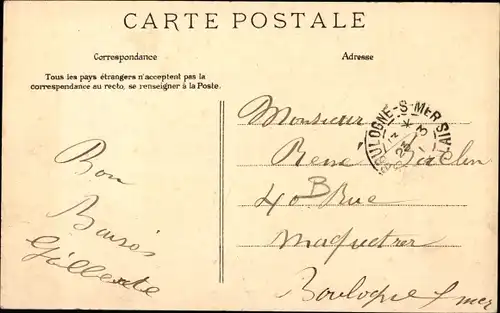 CARTE POSTALE
Correspondance
Tous les pays étrangers n'acceptent pas la
correspondance au recto, se renseigner à la Poste.
Bon
Baisés
Gilberte
Adresse
BOULOGNE-S-MER
23
Monsieur
René
40 B Rue
Boulogne s/mer